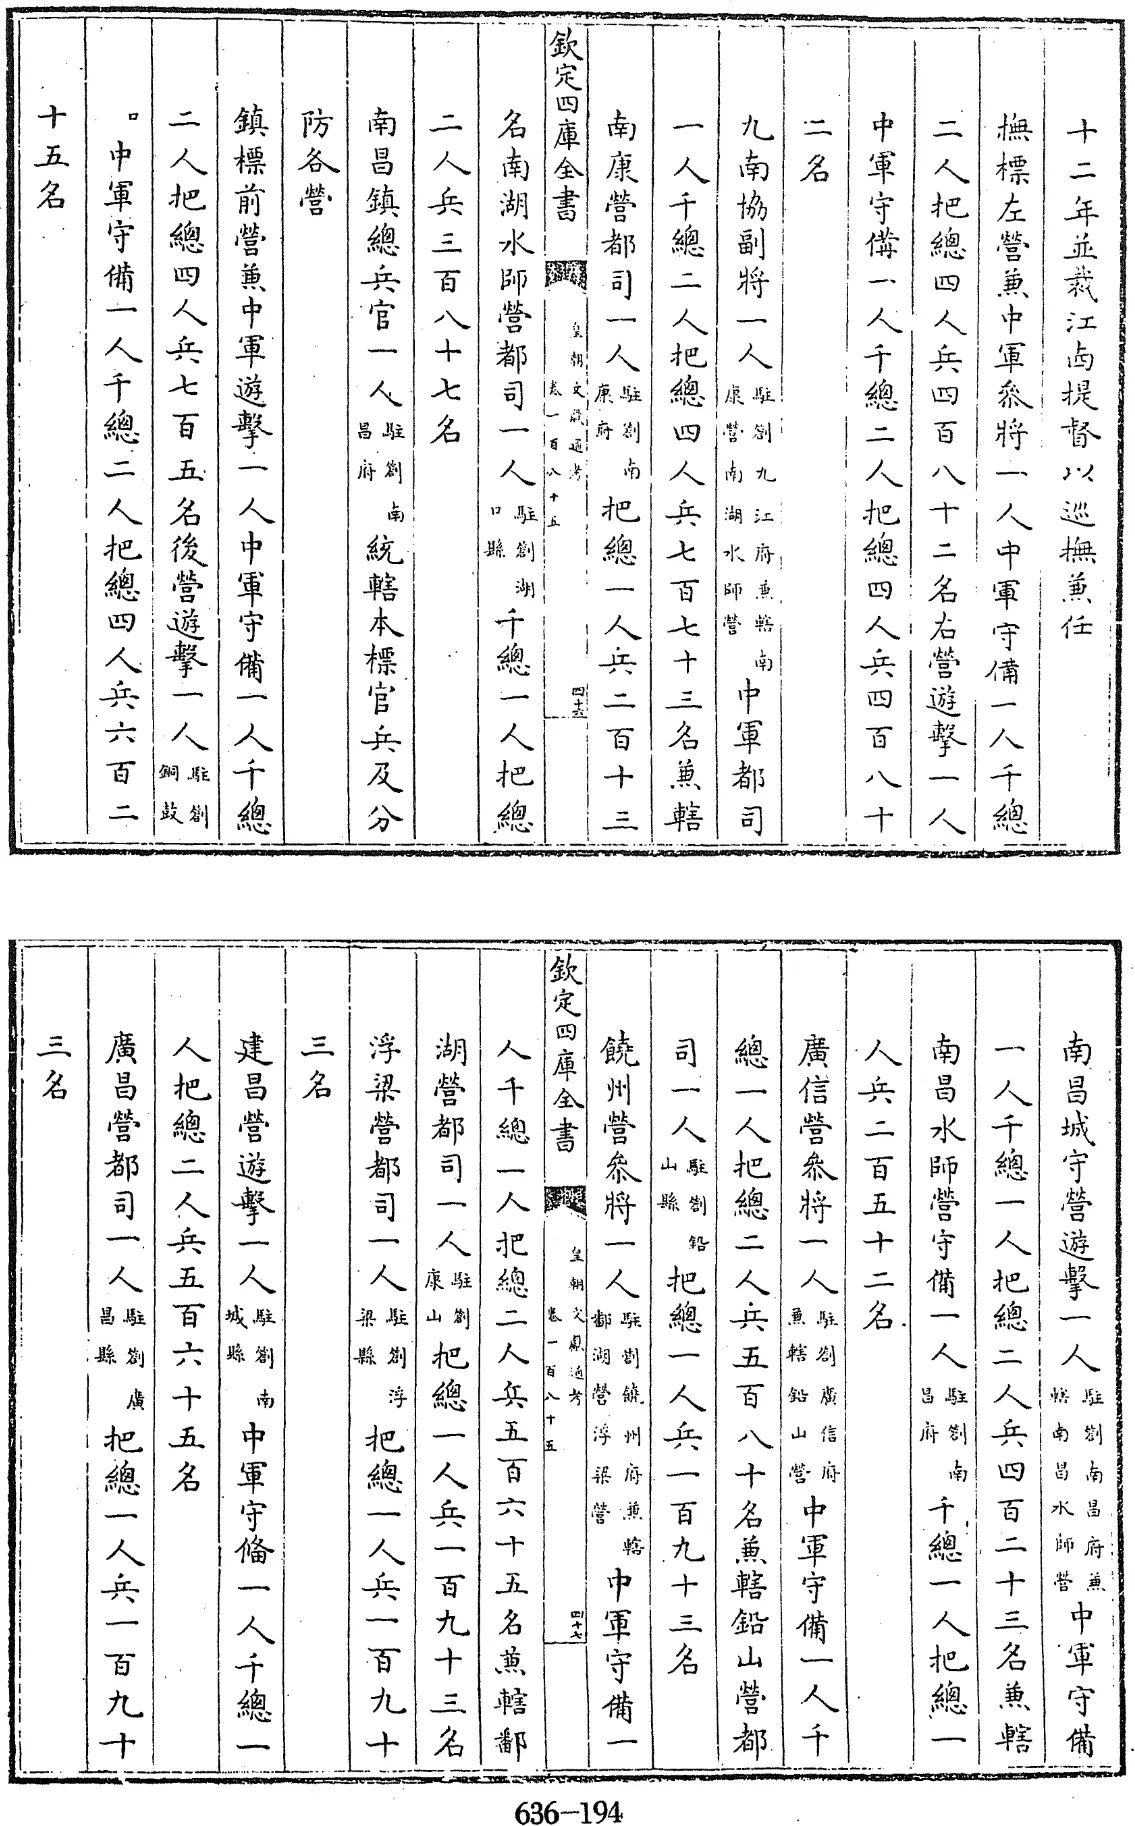 十二年並裁江西提督以巡撫兼任
撫標左營兼中軍叅將一人中軍守備一人千總
二人把總四人兵四百八十二名右營遊擊一人
中軍守備一人千總二人把總四人兵四百八十
二名
九南協副將一人駐劄九江府兼轄南康營南湖水師營中軍都司
一人千總二人把總四人兵七百七十三名兼轄
南康營都司一人駐劄南康府把總一人兵二百十三
欽定四庫全書 皇朝文獻通考 卷一百八十五 四十六
名南湖水師營都司一人駐劄湖口縣千總一人把總
二人兵三百八十七名
南昌鎮總兵官一人駐劄南昌府統轄本標官兵及分
防各營
鎮標前營兼中軍遊擊一人中軍守備一人千總
二人把總四人兵七百五名後營遊擊一人駐劄銅鼓
口中軍守備一人千總二人把總四人兵六百二
十五名
南昌城守營遊擊一人駐劄南昌府兼轄南昌水師營中軍守備
一人千總一人把總二人兵四百二十三名兼轄
南昌水師營守備一人駐劄南昌府千總一人把總一
人兵二百五十二名
廣信營叅將一人駐劄廣信府兼轄鉛山營中軍守備一人千
總一人把總二人兵五百八十名兼轄鉛山營都
司一人駐劄鉛山縣把總一人兵一百九十三名
饒州營叅將一人駐劄饒州府兼轄鄱湖營浮梁營中軍守備一
欽定四庫全書 皇朝文獻通考 卷一百八十五 四十七
人千總一人把總二人兵五百六十五名兼轄鄱
湖營都司一人駐劄康山把總一人兵一百九十三名
浮梁營都司一人駐劄浮梁縣把總一人兵一百九十
三名
建昌營遊擊一人駐劄南城縣中軍守備一人千總一
人把總二人兵五百六十五名
廣昌營都司一人駐劄廣昌縣把總一人兵一百九十
三名
636-194